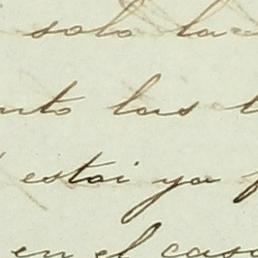 solo la
nto las
estoi ya
en el caso